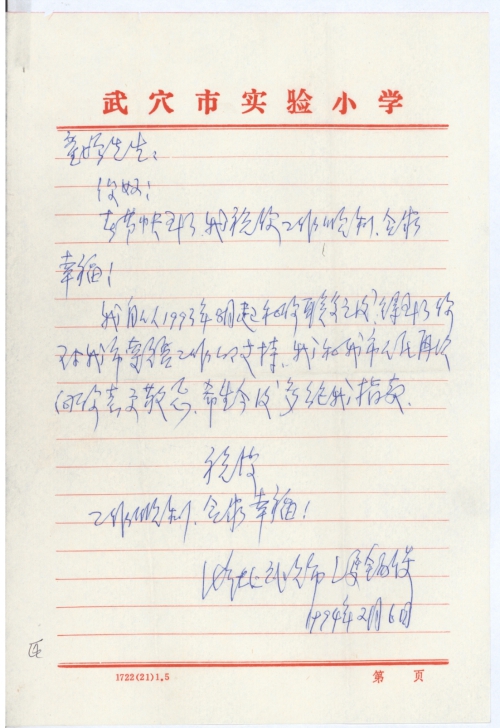 武穴市实验小学
先生:
您好!
春节快到了,我祝您工作顺利,全家
幸福!
我自从1993年8月起和您联交之后,得到了您
对我市工作的支持。我和我市人民再次
向您表示敬意。希望今后多给我指教。
祝您
工作顺利,全家幸福!
湖北武穴市
1994年2月6日
1722(21)1.5
第 页